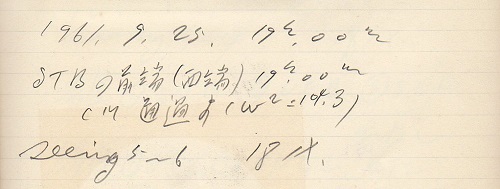 1961. 9. 25. 19h.00m
STBの前端(西端) 19h.00m
CM 通過す (W2=104.3)
Seeing 5~6 18